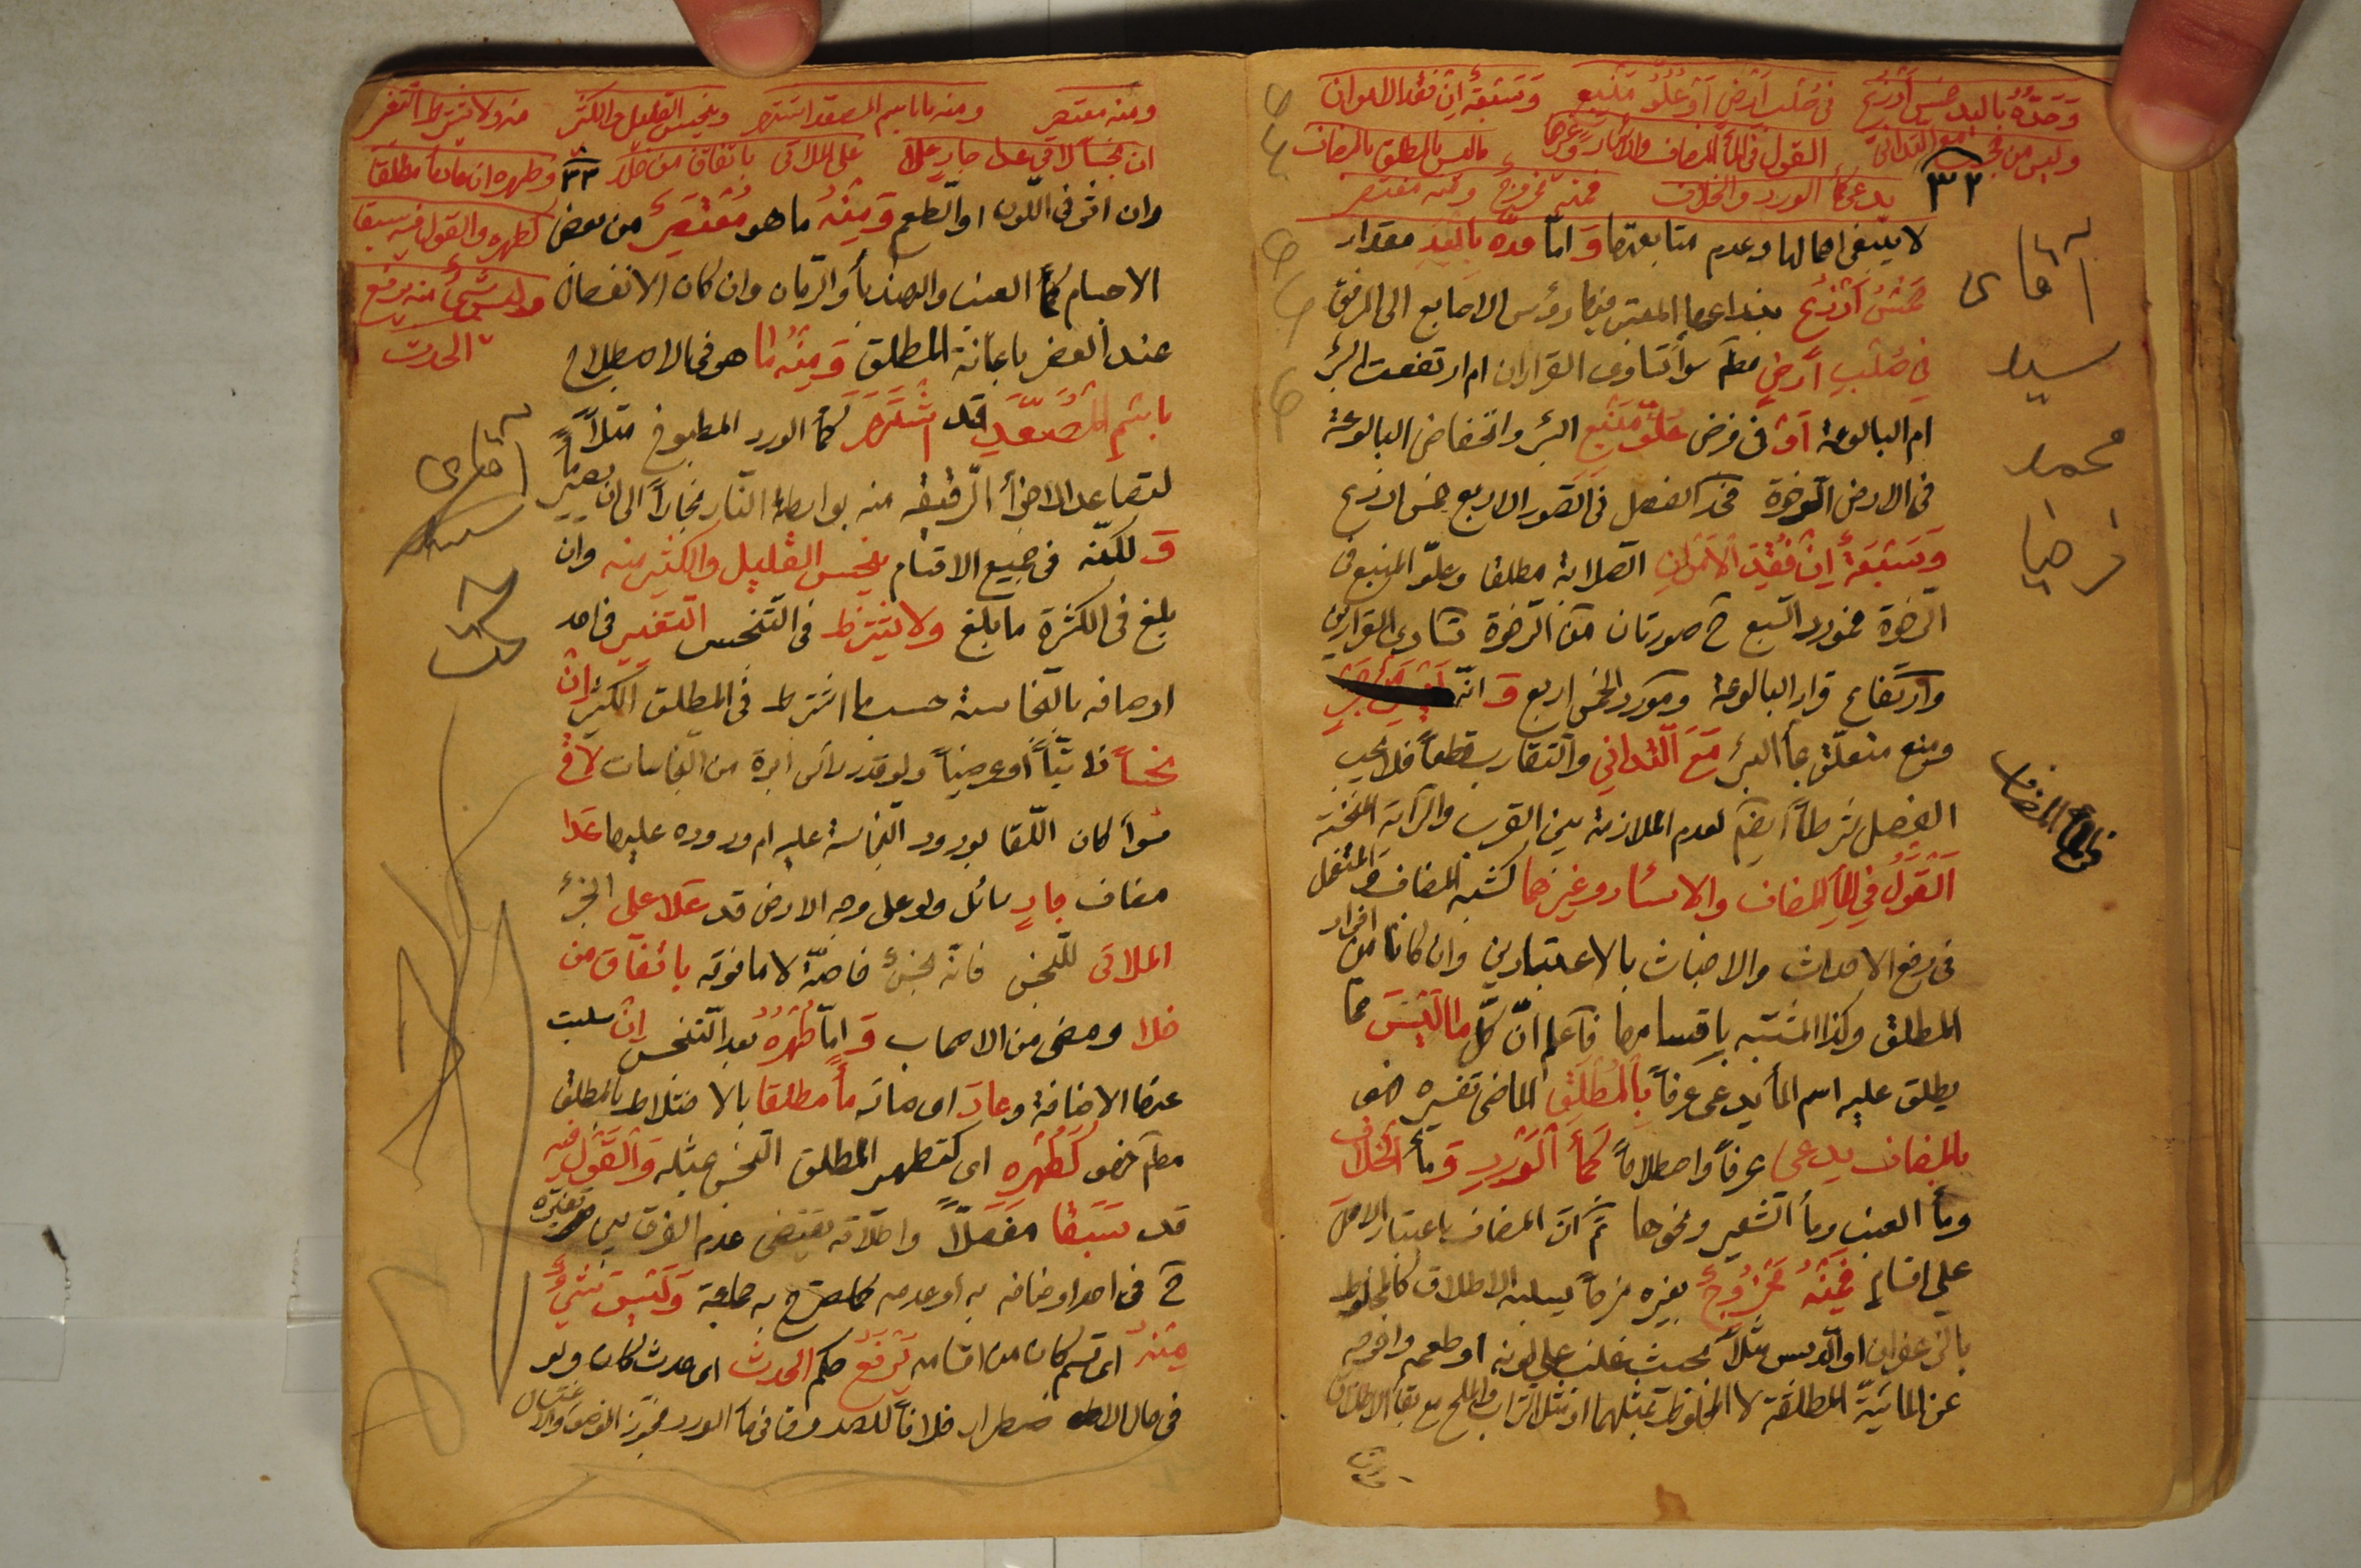 وحده باليد خمس أذرع في صلب أرض أو علو منبع وسبعة إن فقد الامران
وليس من مجب مع التداني القول في الماء المضاف والأسئار وغيرها ما ليس بالمطلق بالمضاف
يدعى كماء الورد والخلاف فمنه ممزوج ومنه معتصر
٣٢
لا ينبغي اهمالها وعدم متابعتها وَ امّا حدّه باليَدِ مقدار
خَمْسُ أذرُع بذراعها المعتبر فيها رؤس الاصابع الى المرفق
في صُلبِ أرضٍ مط سواء تساوى القراران ام ارتفعت البئر
ام البالوعة أوْ في فرض عُلُوِّ مَنْبَعِ البئر وانخفاض البالوعة
في الارض الرّخوة فحدّ الفصل في الصّور الاربع خمس اذرع
وَسَبْعَةٌ إنْ فُقِدَ الأمْرانِ الصّلابة مطلقا وعلوّ المنبع في
الرّخوة فمورد السّبع ح صورتان من الرّخوة تساوى القرارين
وارتفاع قرار البالوعة ومورد الخمس اربع وَ انّه
ومنع متعلّق بماء البئر مَعَ التّداني والتقارب قطعاً فلا يجب
الفصل شرطاً ايضا لعدم الملازمة بين القرب والسراية
القَوْلُ في الماءِ المضاف والاسئار وغيرها كشبه المضاف والمستعمل
في رفع الاحداث والاخباث بالاعتبارين وان كانا من افراد
المطلق وكذا المشتبه باقسامها فاعلم انّ كلّ ما لَيْسَ ممّا
يطلق عليه اسم الماء يدعى عرفاً بالمُطْلَقِ الماضى تفسيره فهو
بالمضاف يدعى عرفاً واصطلاحاً كَماءِ الوَرْدِ وَماء الخلاف
وماء العنب وماء الشّعير ونحوها ثمّ انّ المضاف باعتبار الاصل
على اقسام فَمِنْهُ مَمْزُوجٌ بغيره مزجاً يسلبه الاطلاق كالمخلوط
بالزعفران او الدبس مثلاً بحيث يغلب على لونه او طعمه واخرجه
عن المائيّة المطلقة لا المخلوط بمثلهما او مثل التراب والملح مع بقاء الاطلاق
آقاى
سيد
محمد
رضا
في الماء المضاف
ومنه معتصر ومنه ما باسم المصعد اشتهر وينجس القليل والكثير منه ولا يشترط التغير
ان نجسا لاقى عدا جار علا على الملاقى باتفاق من خلا
٣٣
وطهره ان عاد ماء مطلقا
كطهره والقول فيه سبقا
وليس شئ منه يرفع
الحدث
وان اثّر في اللّون او الطّعم وَمِنْهُ ما هو مُعْتَصَرٌ من بعض
الاجسام كماء العنب والهندباء والرّمان وان كان الانفصال
عند العصر باعانة المطلق وَمِنْهُ ما هو في الاصطلاح
باسْمِ المُصَعَّدِ قد اشْتَهَرَ كماء الورد المطبوخ مثلاً
لتصاعد الاجزاء الرّقيقة منه بواسطة النّار بخاراً الى ان يصير ماءً
وَ لكنّه في جميع الاقسام ينجس القليل والكثير منه وان
بلغ في الكثرة ما بلغ ولا يشترط في التّنجس التّغير في احد
اوصافه بالنّجاسة حسب ما اشترط في المطلق الكثير إنْ
نجساً ذاتيّاً أو عرضيّاً ولو قدر رأس ابرة من النّجاسات لاقى
سواء كان اللّقاء بورود النّجاسة عليه ام وروده عليها عَدا
مضاف جارٍ سائل ولو على وجه الارض قد عَلا على الجزء
الملاقى للنّجس فانّه نجسٌ خاصّة لا ما فوقه باتفاق من
خلا ومضى من الاصحاب وَ امّا طُهْرُه بعد التنجّس إنْ سلبت
عنه الاضافة وعادَ اى صار ماءً مطلقا بالاختلاط بالمطلق
مط فهو كَطُهْرِهِ اى كتطهر المطلق النّجس بمثله وَالقَوْل فيه
قد سَبَقا مفصّلاً واطلاقه يقتضى عدم الفرق بين تغيّره
ح في احد اوصافه به أو عدمه كما صرّح به جماعة وَلَيْسَ شَئٌ
مِنْهُ اى قسم كان من اقسامه يَرْفَعُ حكم الحدث اى حدث كان ولو
في حال الاضطرار خلافاً للصدوق في ماء الورد فجوّز الوضوء والاغتسال
آقاى
سيد